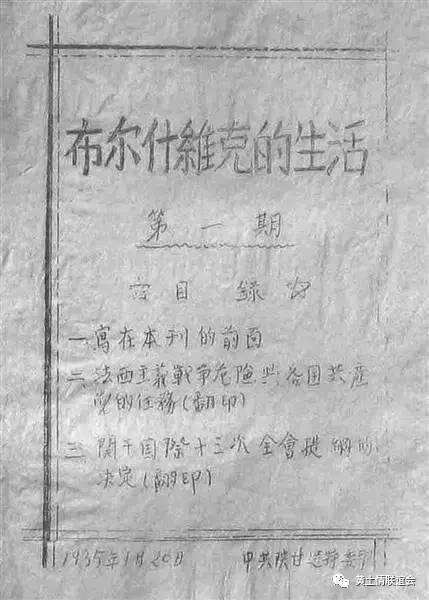 布尔什維克的生活
第一期
目錄
一 寫在本刊的前面
二 法西主義戰争危险与各国共產
党的任務(翻印)
三 関于国際十三次全會提綱的
决定(翻印)
1935年1月20日 中共陕甘边特委
黄土情联谊会